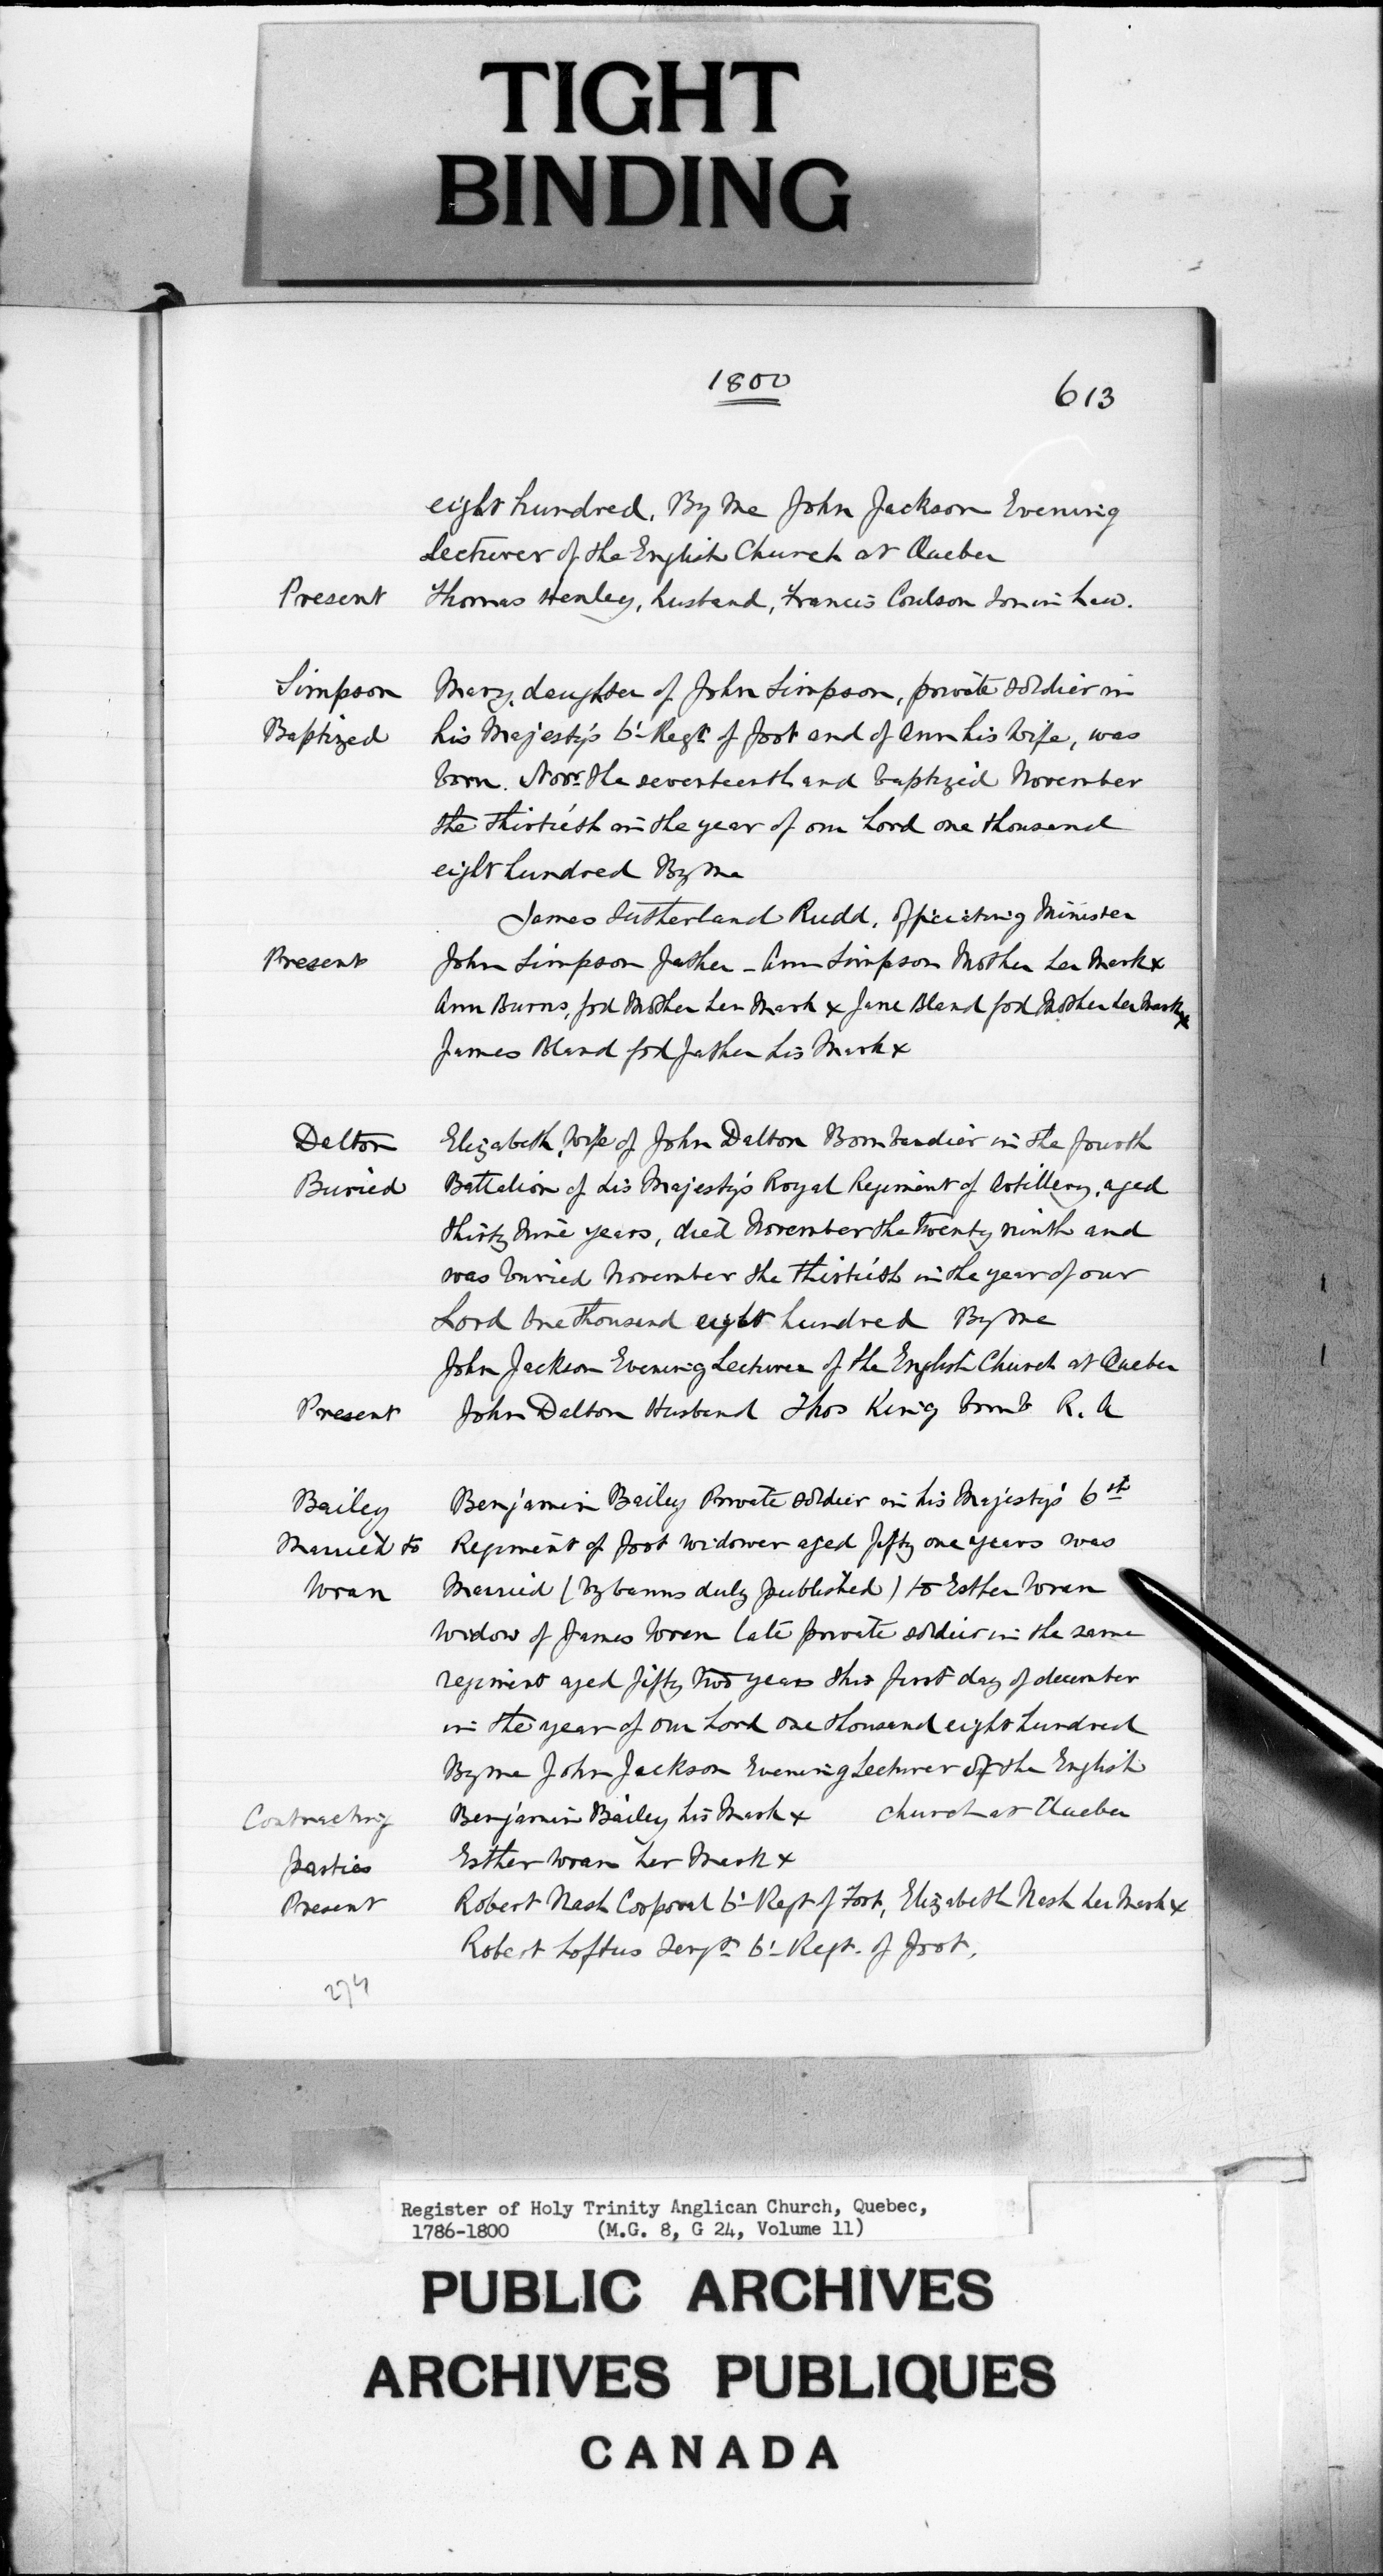 TIGHT
BINDING
1800
613
eight hundred. By me John Jackson Evening
Lecturer of the English Church at Quebec
Present Thomas Henley, husband, Francis Coulson Son in Law.
Simpson Mary, daughter of John Simpson, private soldier in
Baptized his Majesty's 6th Regt of foot and of Ann his wife, was
born. Novr. the seventeenth and baptized November
the thirtieth in the year of our Lord one thousand
eight hundred By me
James Sutherland Rudd. Officiating Minister
Present John Simpson father - Ann Simpson Mother her Mark x
Ann Burns, god Mother her Mark x Jane Bland god Mother her Mark x
James Bland god father his Mark x
Dalton Elizabeth, wife of John Dalton Bombardier in the fourth
Buried Battalion of his Majesty's Royal Regiment of Artillery, aged
thirty nine years, died November the twenty ninth and
was buried November the thirtieth in the year of our
Lord One thousand eight hundred By me
John Jackson Evening Lecturer of the English Church at Quebec
Present John Dalton Husband Thos King bomb R. A
Bailey Benjamin Bailey Private soldier in his Majesty's 6th
Married to Regiment of foot widower aged fifty one years was
Wran Married (by banns duly published) to Esther Wran
widow of James Wran late private soldier in the same
regiment aged fifty two years this first day of december
in the year of our Lord one thousand eight hundred
By me John Jackson Evening Lecturer of the English
Contracting Benjamin Bailey his Mark x church at Quebec
parties Esther Wran her Mark x
Present Robert Nash Corporal 6th Regt of Foot, Elizabeth Nash her Mark x
Robert Loftus Sergt. 6th Regt. of foot.
274
Register of Holy Trinity Anglican Church, Quebec,
1786-1800 (M.G. 8, G 24, Volume 11)
PUBLIC ARCHIVES
ARCHIVES PUBLIQUES
CANADA